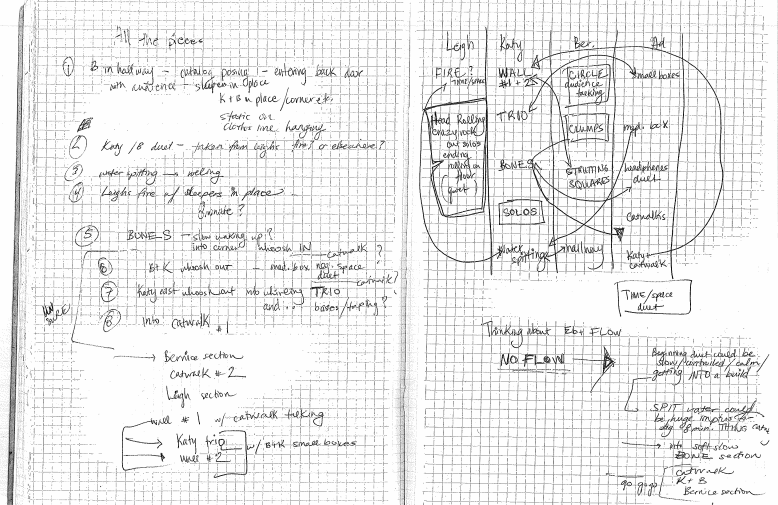 All the pieces
① B in hallway – catalog posing – entering back door
with audience – sleepers in place
K + B in place/concrete.
static on
clothes line hanging
2 Katy/B duet – taken from Leighs fire? or elsewhere?
③ water spitting → welling
④ Leighs fire w/ sleepers in place –
8 minute?
⑤ BONES – slow waking up?
into corner whoosh IN catwalk?
⑥ B+K whoosh out – med. box neg. space duet
catwalk?
⑦ Katy east whoosh out into whirling TRIO
and.. boxes/taping?
⑧ into catwalk #1
→ Bernice section
catwalk #2
Leigh section
wall #1 w/ catwalk talking
→ Katy trio
→ wall #2 w/ B+K small boxes
Leigh Katy Ber. Ad
FIRE? WALL #1 + 2 CIRCLE audience talking small boxes
TIME/SPACE
Head Rolling
crazy rock
out solos
ending
rolling on
floor
(quiet)
TRIO CLUMPS med. box
BONES STRUTTING SQUARES headphones duet
SOLOS catwalks
water spitting hallway Katy + catwalk
TIME/space
duet
Thinking about Ebb + FLOW
NO FLOW →
Beginning duet could be
slow/controlled/calm/
getting INTO a build
SPIT water could
be huge improv
8 min. THING
→ into soft slow
BONE section
go go go catwalk
K + B
Bernice section